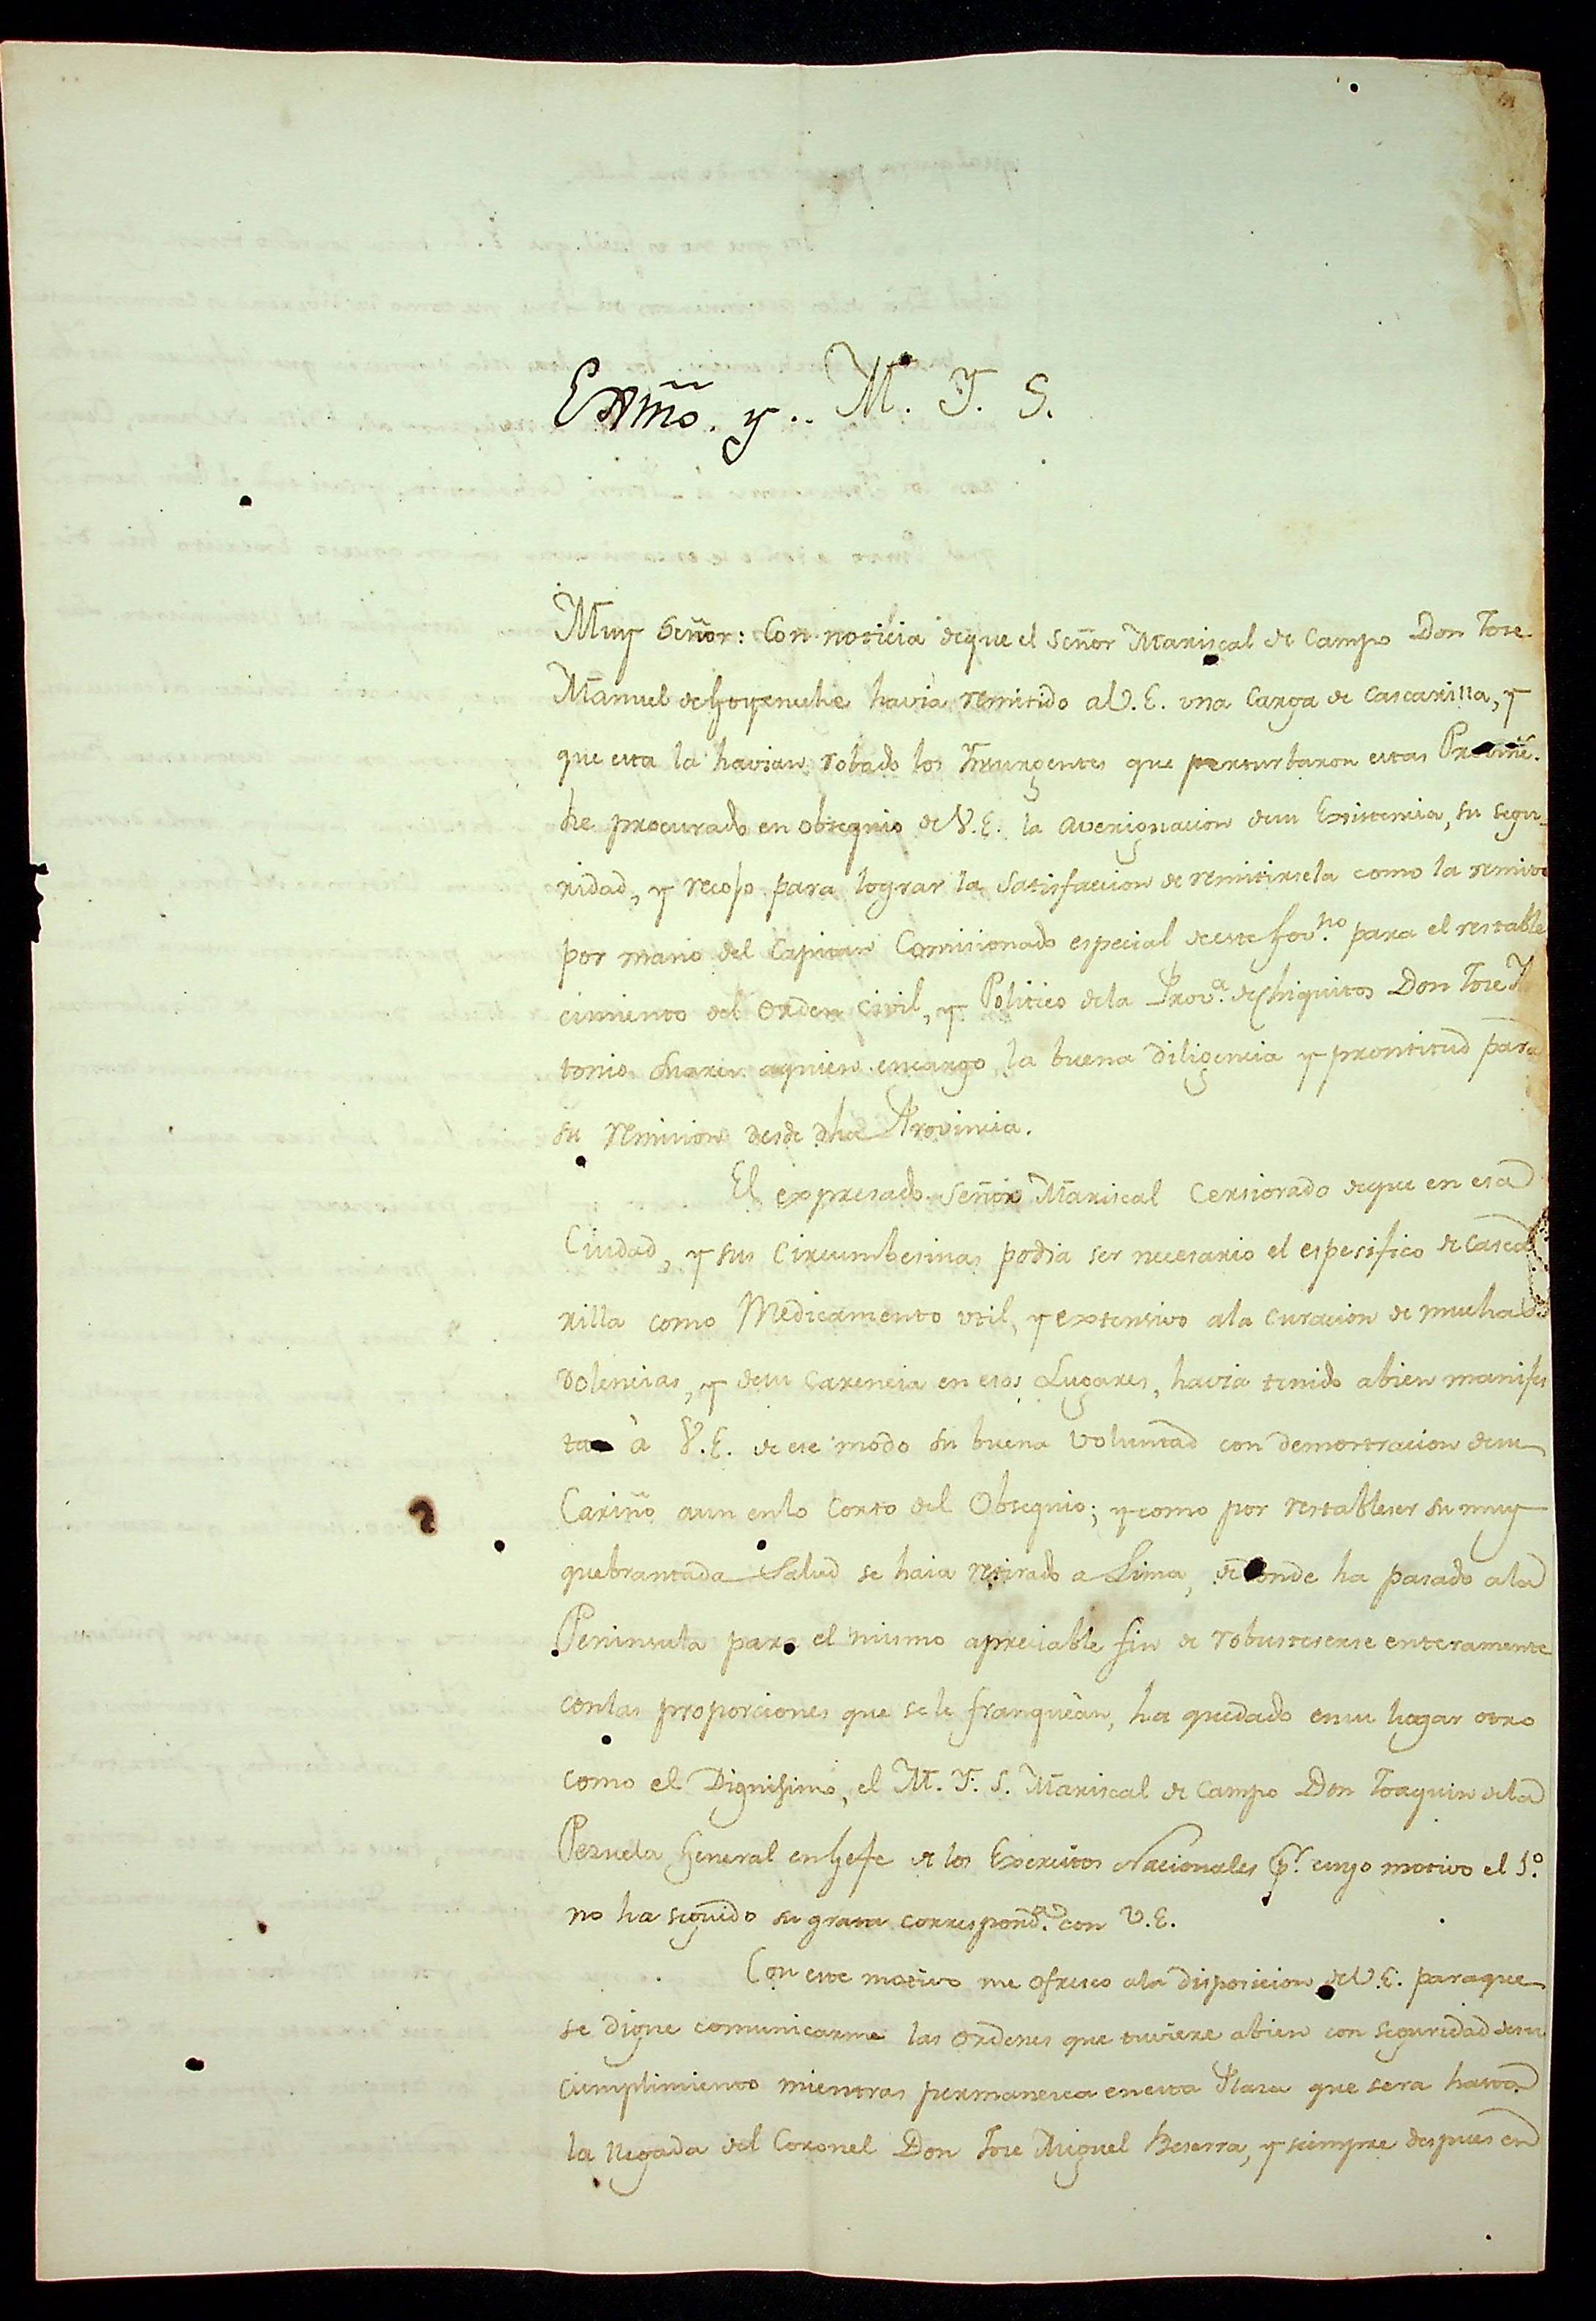 Exmõ. y.. M. Y. S.
Muy Señor: Con noticia deque el Señor Mariscal de Campo Don Jose
Manuel de Goyeneche havia remitido aV. E. vna Carga de Cascarilla, y
que esta la havian robado los Ynsurgentes que perturbaron estas Provinẽ.
he procurado en obsequio de V. E. la averiguacion desu Existencia, su segu-
ridad, y recojo para lograr la satisfaccion de remitirsela como la remito
por mano del Capitan Comisionado especial deeste Gov.no para el restable
cimiento del Orden Civil, y Politico dela Prov.a deChiquitos Don Jose
tonio Suares aquien encargo la buena diligencia y prontitud para
su remision desde dha Provincia.
El expresado Señor Mariscal Cersiorado deque en esa
Ciudad, y sus Circumbesinas podia ser necesario el espesifico de Casca
rilla como Medicamento vtil, y extensivo ala curacion de muchas
dolencias, y desu Carencia en esos Lugares, havia tenido abien manifes
tar à V. E. de ese modo su buena Voluntad con demostracion desu
Cariño aun enlo Corto del Obsequio; y como por restableser su muy
quebrantada Salud se haia retirado a Lima, de donde ha pasado ala
Peninsula para el mismo apreciable fin de robusteserse enteramente
conlas proporciones que sele franqueàn, ha quedado ensu lugar otro
como el Dignisimo, el M. Y. S. Mariscal de Campo Don Joaquin dela
Pezuela General enGefe de los Exercitos Nacionales pr. cuyo motivo el 1.o
no ha seguido su grata correspond.a con V. E.
Con este motivo me ofresco ala disposicion deV. E. paraque
se digne comunicarme las ordenes que tuviere abien con seguridad desu
Cumplimiento mientras permanesca enesta Plaza que sera hasta
la llegada del Coronel Don Jose Miguel Beserra, y siempre despues en